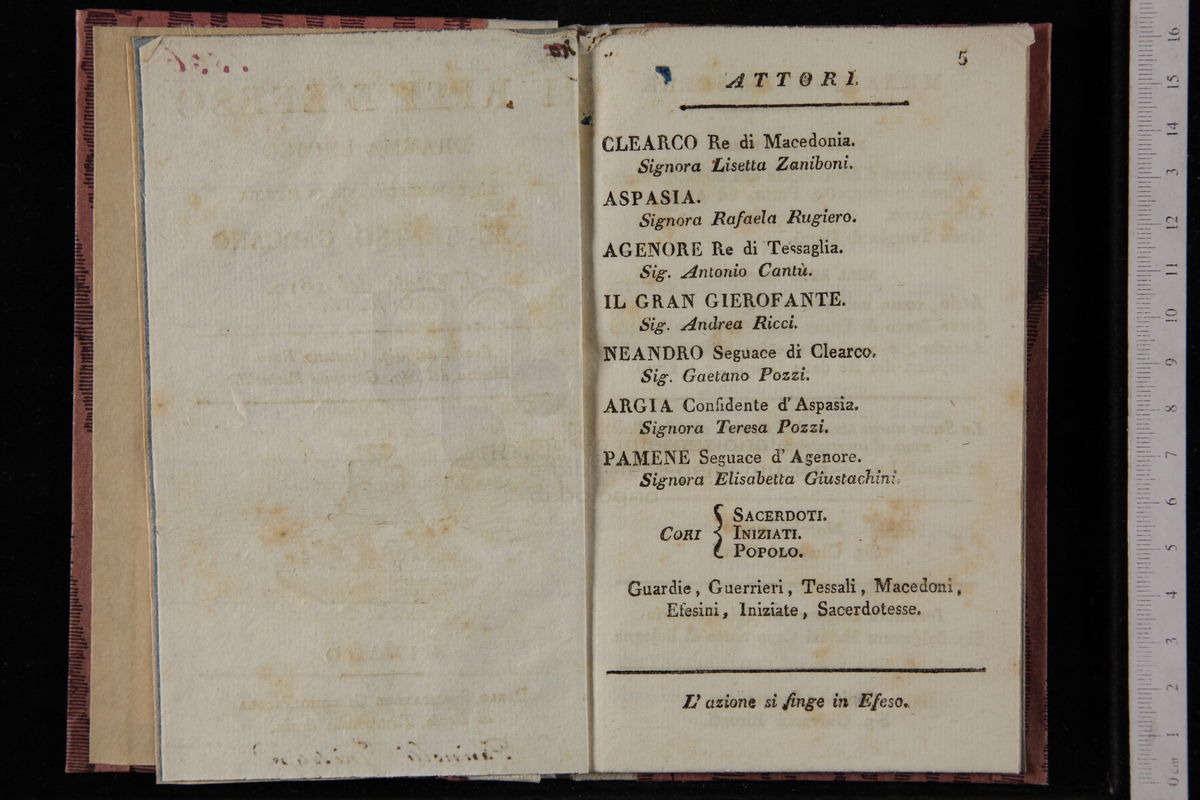 5
ATTORI.
CLEARCO Re di Macedonia.
Signora Lisetta Zaniboni.
ASPASIA.
Signora Rafaela Rugiero.
AGENORE Re di Tessaglia.
Sig. Antonio Cantù.
IL GRAN GIEROFANTE.
Sig. Andrea Ricci.
NEANDRO Seguace di Clearco.
Sig. Gaetano Pozzi.
ARGIA Confidente d'Aspasia.
Signora Teresa Pozzi.
PAMENE Seguace d'Agenore.
Signora Elisabetta Giustachini.
CORI { SACERDOTI.
INIZIATI.
POPOLO.
Guardie, Guerrieri, Tessali, Macedoni,
Efesini, Iniziate, Sacerdotesse.
L'azione si finge in Efeso.
0 cm 1 2 3 4 5 6 7 8 9 10 11 12 13 14 15 16